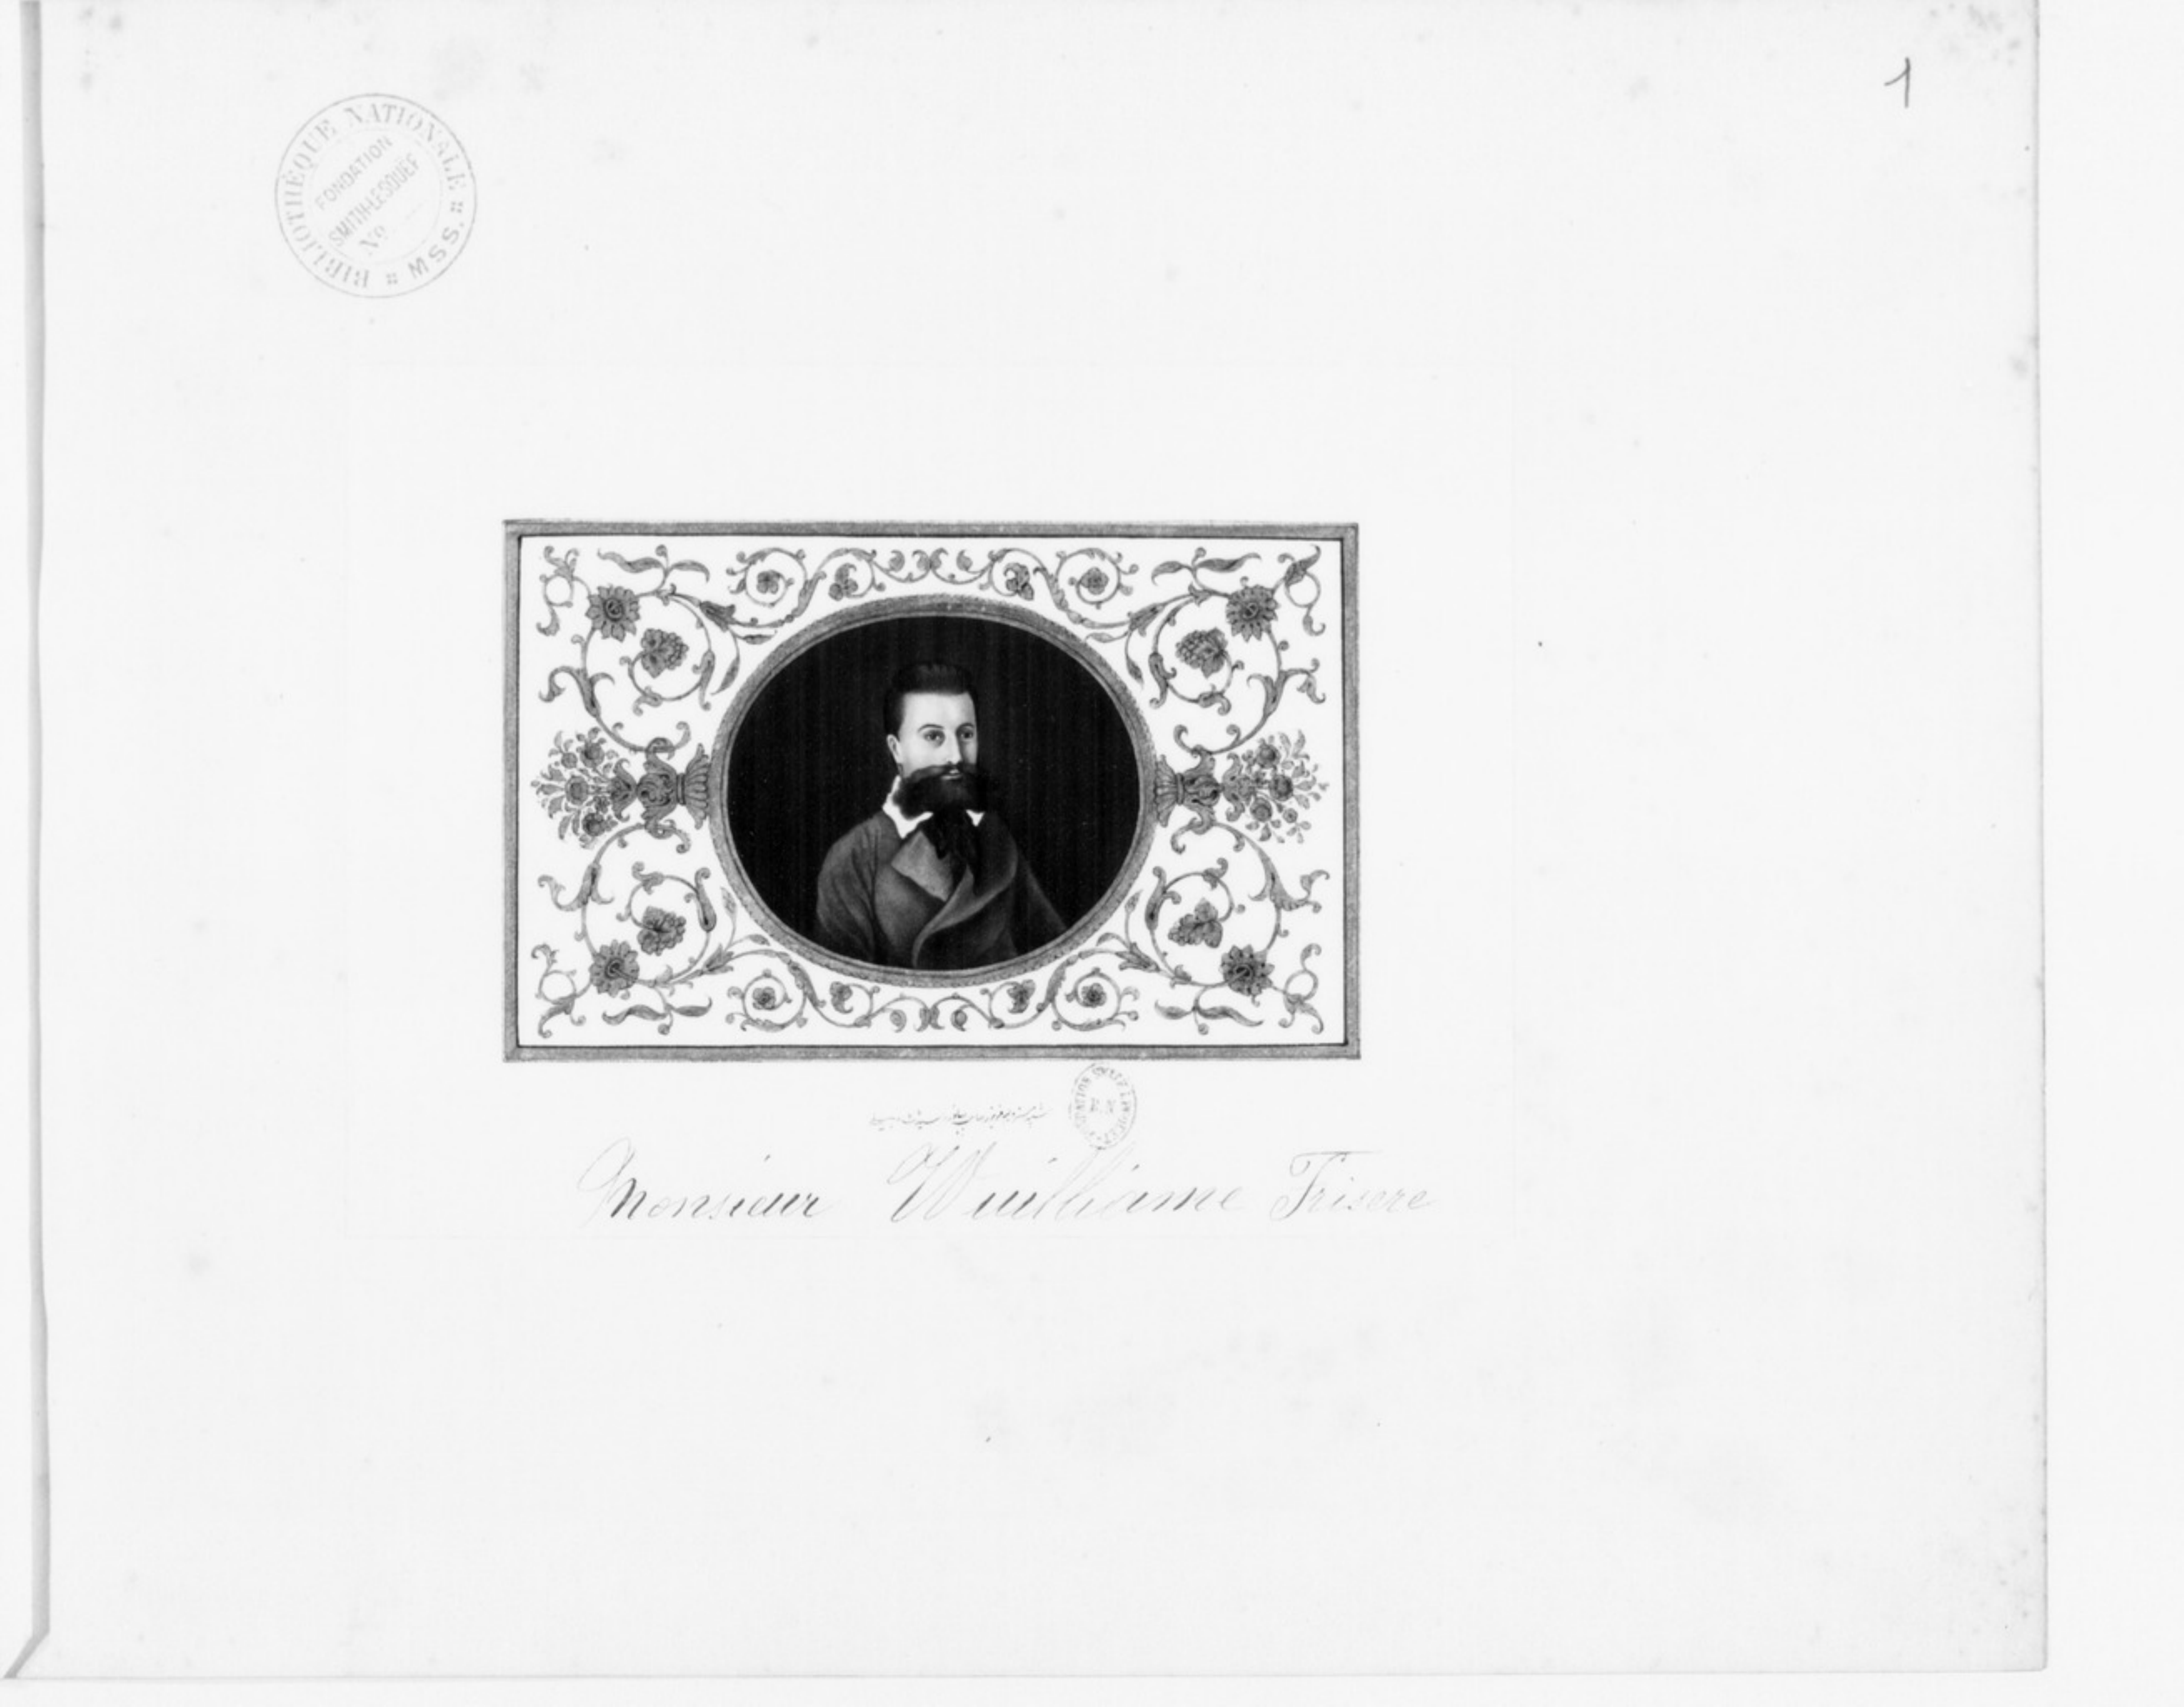 1
BIBLIOTHÈQUE NATIONALE MSS.
FONDATION
SMITH-LESOUËF
No
B.N
Monsieur Wuilliame Frisere